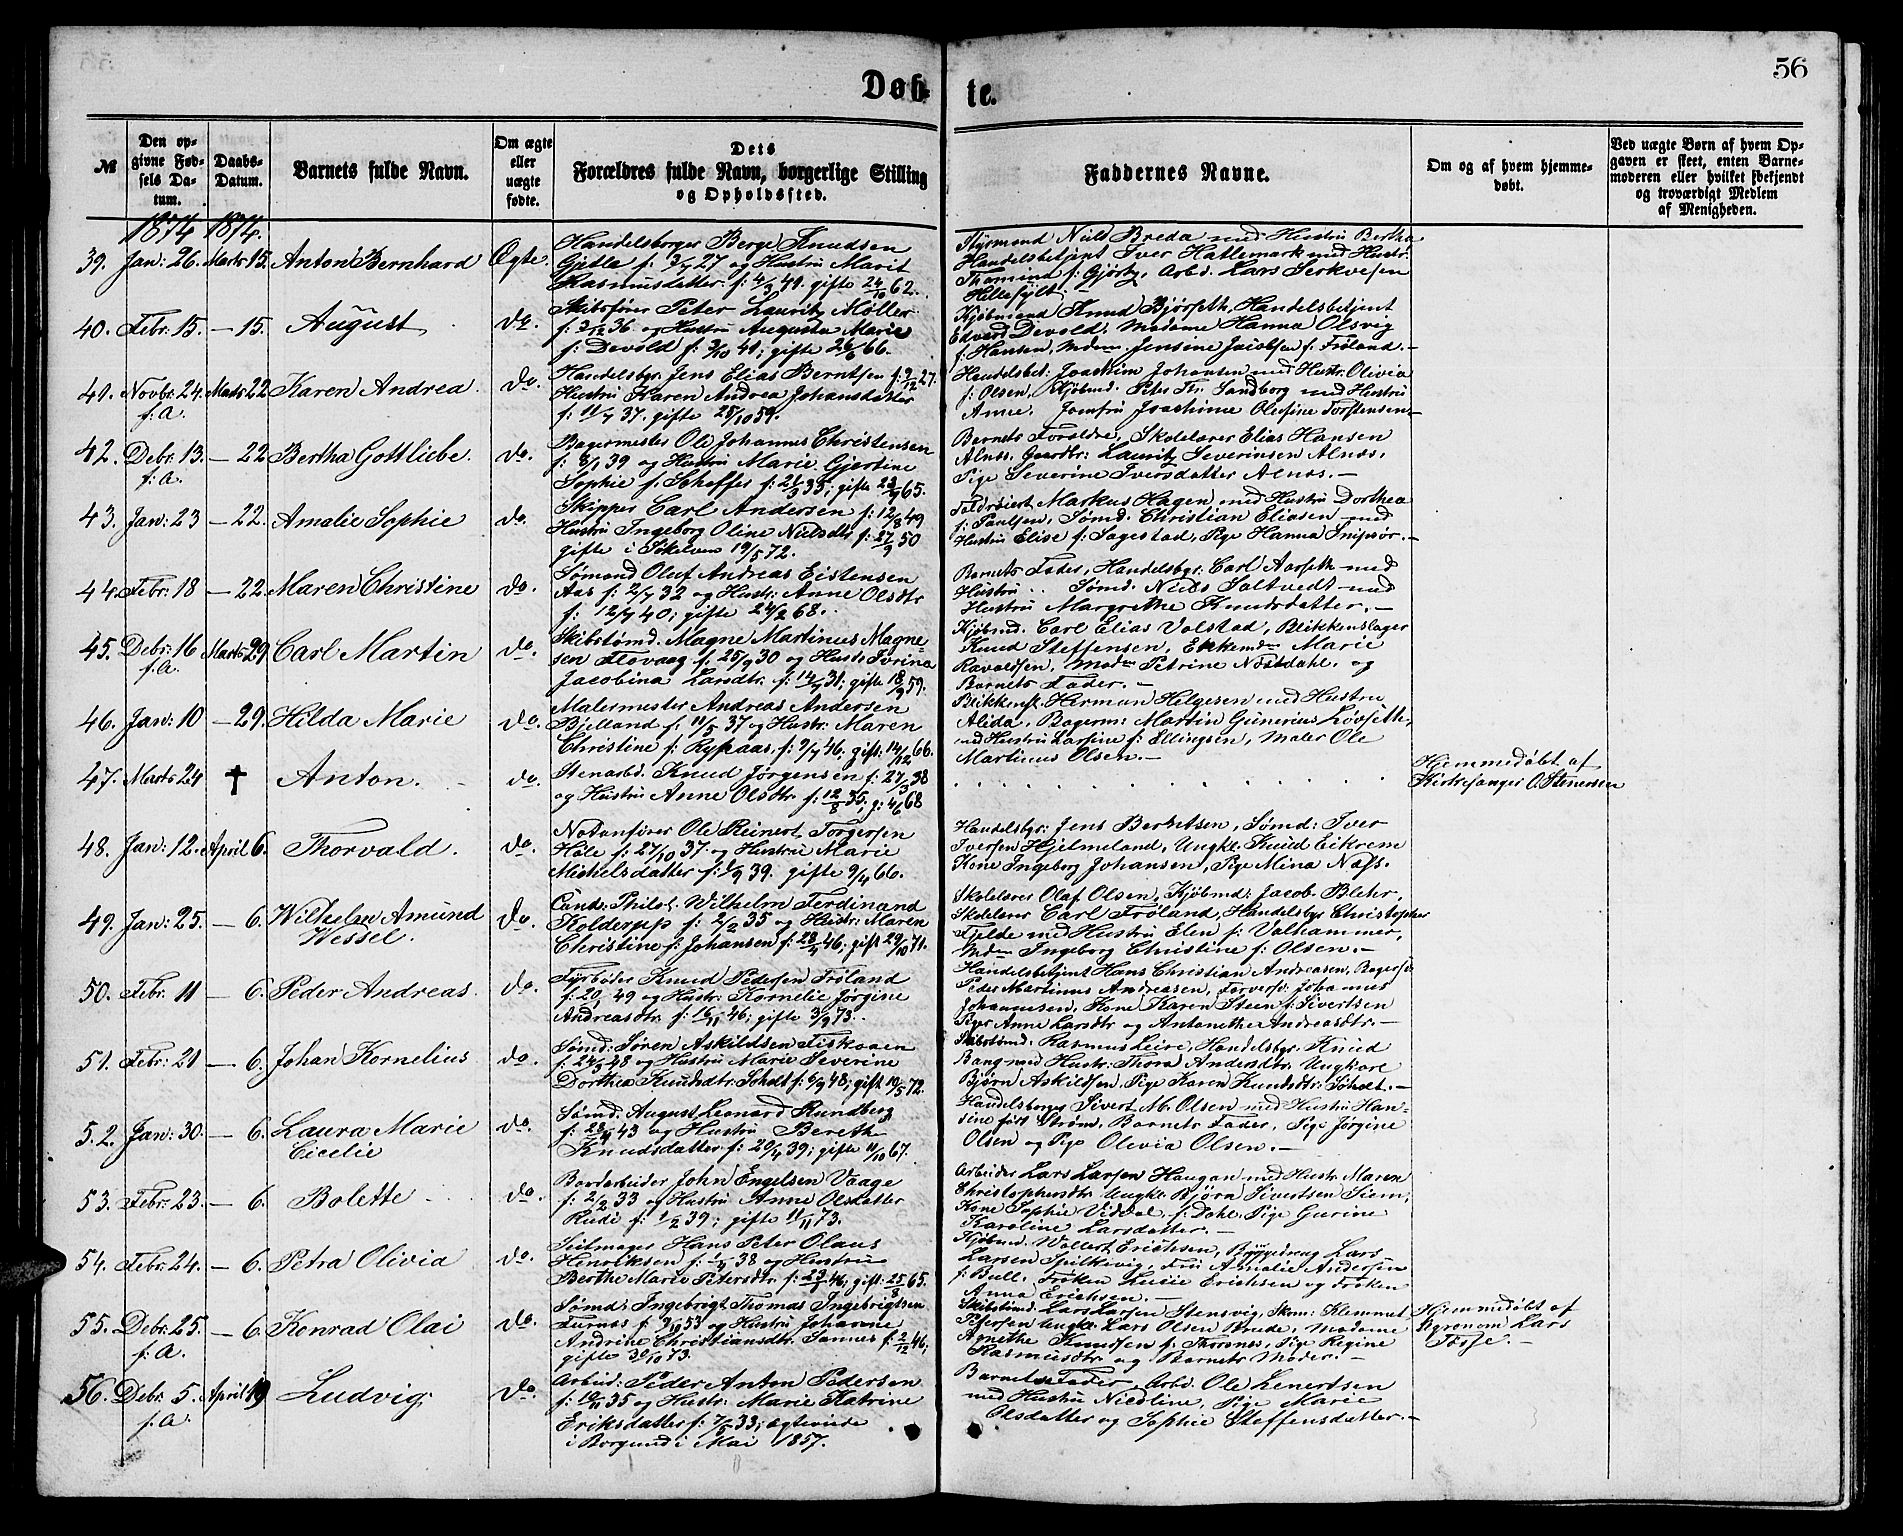 56
Døbte.
№
Den opgivne Fødsels Datum.
Daabs-Datum.
Barnets fulde Navn.
Om ægte eller uægte fødte.
Dets Forældres fulde Navn, borgerlige Stilling og Opholdssted.
Faddernes Navne.
Om og af hvem hjemmedøbt.
Ved uægte Børn af hvem Opgaven er skeet, enten Barnemoderen eller hvilket bekjendt og troværdigt Medlem af Menigheden.
1874 1874.
39. Jan: 26. Marts 15. Anton Bernhard Ægte.
Handelsborger Berge Knudsen
Gjetle f: 3/7 27 og Hustru Marit
Rasmusdatter f: 4/3 41. gifte 24/10 62.
Styrmand Niels Breda med Hustru Bertha
Handelsbetjent Iver Hatlemark med Hustr:
Thomine f: Gjørtz, Arbd. Lars
40. Febr: 15. — 15. August do.
Skibsfører Peter Lauritz Møller
f: 2/12 36 og Hustru Augusta Marie
f: Devold f: 3/10 41; gifte 26/6 66.
Kjøbmand Knud Bjørseth, Handelsbetjent
Edvard Devold, Madame Hanna Olsvig
f: Hansen, Mdm. Jensine Jacobsen f: Frøland.—
41. Novbr: 24. f.A. Marts 22 Karen Andrea. do.
Handelsbgr. Jens Elias Berntsen f: 9/12 27.
Hustru Karen Andrea Johansdatter
f: 11/7 37. gifte 25/10 59.
Handelsbet. Joachim Johansen med Hustr: Olivia
f: Olsen, Kjøbmd. Peter Fr. Sandborg med Hustru
Anne. Jomfru Joachime Olufine Torstensen—
42. Debr. 13. f.A. — 22 Bertha Gottliebe. do.
Bagermester Ole Johannes Christensen
f: 8/1 39 og Hustru Marie Gjertine
Sophie f. Scheffer f: 21/3 33; gifte 23/4 65.
Barnets Forældre, Skolelærer Elias Hansen
Alnæs. Gaardbr: Lauritz Severinsen Alnæs,
Pige Severine Iversdatter Alnæs.—
43. Jan: 23 — 22. Amalie Sophie do.
Skipper Carl Andersen f: 12/8 49
Hustru Ingeborg Oline Nielsdtr f: 27/9 50
gifte i 19/5 72.
Markus Hagen med Hustru Dorthea
f: Paulsen, Sømd. Christian Eliasen med
Hustru Elise f: Sagestad, Pige Hanna Snipsør.—
44. Febr: 18 — 22. Maren Christine do.
Sømand Oluf Andreas Eistensen
Aas f: 2/7 32 og Hustr: Anne Olsdtr
f: 12/7 40; gifte 24/2 68.
Barnets Fader, Handelsbgr: Carl Aarseth med
Hustru .. Sømd. Niels Saltvedt med
Hustru Margrethe Knudsdatter.—
45. Debr: 16 f.A. Marts 29. Carl Martin do.
Skibstømd. Magne Martinus Magne-
sen Flovaag f: 25/9 30 og Hustr: Ivrina
Jacobina Larsdtr. f: 14/7 31; gifte 18/9 59.
Kjøbmd. Carl Elias Volstad, Blikkenslager
Knud Steffensen, Enkemdm Marie
Ravaldsen, Mdm Petrine Nørdahl, og
Barnets Fader.—
46. Jan: 10 — 29. Hilda Marie do.
Malermester Andreas Andersen
Bjelland f: 11/5 37 og Hustr: Maren
Christine f: Rypaas, f: 9/7 46, gift: 14/12 66.
Blikkensl. Herman Helgesen med Hustru
Alida, Bagerm: Martin Gunerius Løvseth
med Hustru Larsine f: Ellingsen, Maler Ole
Martinus Olsen.—
47. Marts 24 † Anton. do.
Stenarbd. Knud Jørgensen f: 27/3 38
og Hustru Anne Olsdtr f: 12/8 35; g: 4/6 68
Hjemmedøbt af
Kirkesanger O. Stenersen
48. Jan: 12. April 6. Thorvald. do.
Notanfører Ole Reinert Torgersen
Hole f: 27/10 37 og Hustru Marie
Michelsdatter f: 1/9 39. gifte 9/4 66.
Handelsbgr: Jens Berntsen, Sømd: Iver
Iversen Hjelmeland, Ungk: Knud Eikrem
Kone Ingeborg Johansen, Pige Mina Næss.
49. Jan: 25. — 6. Wilhelm Amund Wessel. do.
Cand: Philol: Wilhelm Ferdinand
Kolderup f: 2/2 35 og Hustr: Maren
Christine f: Johansen f: 28/4 46; gift 29/10 71.
Skolelærer Olaf Olsen, Kjøbmd: Jacob Blehr,
Skolelærer Carl Frøland, Handelsbgr Christopher
Fjelde med Hustru Elen f: Valhammer,
Mdm Ingeborg Christine f: Olsen.—
50. Febr: 11 — 6. Peder Andreas. do.
Fyrbøder Knud Pedersen Frøland
f: 20 49 og Hustr: Kornelie Jørgine
Andreasdtr. f: 16/11 46; gifte 3/9 73.
Handelsbetjent Hans Christian Andreasen, Bagersv.
Peder Martinus Andreasen, Farversv: Johannes
Johannesen, Kone Karen Steen f: Sivertsen
Pige Anne Larsdtr og Antonethe Andreasdtr.—
51. Febr: 21 — 6. Johan Kornelius. do.
Sømd: Søren Askildsen Fiskaaen
f. 24/3 48 og Hustru Marie Severine
Dorthea Knudsdtr: Soholt f: 6/9 48; gift 19/5 72.
Skibstømd: Rasmus Leire, Handelsbgr: Knud
Bang med Hustr: Thora Andersdtr: Ungkarl
Bjørn Askildsen, Pige Karen Knudsdtr: Soholt.—
52. Jan: 30. — 6. Laura Marie Cicelie do.
Sømd: August Leonard Rundberg
f: 28/4 43 og Hustru Berethe
Knudsdatter f: 20/4 39; gifte 11/10 67.
Handelsborger Sivert M. Olsen med Hustru Han-
sine født Strøm, Barnets Fader, Pige Jørgine
Olsen og Pige Olivia Olsen.—
53. Febr: 23. — 6. Bolette do.
Bordarbeider John Engelsen Vaage
f: 2/2 33 og Hustru Anne Olsdatter
Rudi f: 1/2 39; gifte 11/11 73.
Arbeider Lars Larsen Haugan med Hustr: Maren
Christophersdtr: Ungkr: Bjørn Sivertsen Siem,
Kone Sophie Viddal, f: Dahl, Pige Gurine
Karoline Larsdatter.—
54. Febr: 24. — 6. Petra Olivia do.
Seilmager Hans Peter Olaus
Henriksen f: 1/4 38 og Hustru
Berthe Marie Petersdtr. f: 23/7 46; gift: 25/8 65.
Kjøbmd. Wollert Erichsen, Bryggedreng Lars
Larsen Spilkevig, Frú Amalie Andersen
f: Bull, Frøken Lucie Erichsen og Frøken
Anna Erichsen.—
55. Debr: 25. f:A. — 6. Konrad Olai do.
Sømd: Ingebrigt Thomas Ingebrigtsen
Furnæs f: 9/11 53 og Hustru Johanne
Andrine Christiansdtr. f: 2/12 46;
gifte 30/10 73.
Skibstømd: Lars Larsen Stensvig, Skom: Klemmet
Ungkr: Lars Olsen Brude, Madame
Agnethe Knudsen f: Thorsnes, Pige Regine
Rasmusdtr og Barnets Moder.—
Hjemmedøbt af
Agronom Lars
Fosse.—
56. Debr. 5. f.A. April 19 Ludvig do.
Arbeid: Peder Anton Pedersen
f: 10/11 35 og Hustr: Marie Katrine
Eriksdatter f: 7/6 33; ægteviede
i Borgund i Mai 1857.
Barnets Fader, Arbd: Ole Lenertsen
med Hustru Nicoline, Pige Marie
Olsdatter og Sophie Steffensdatter.—